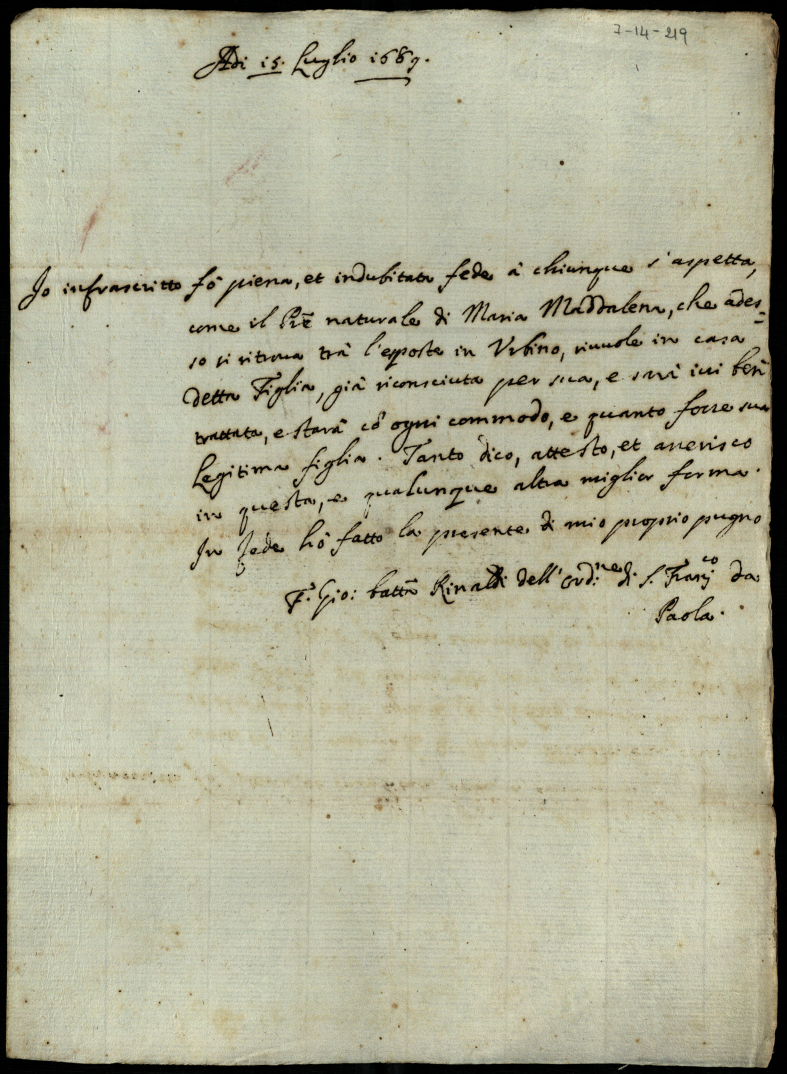 7-14-219
Adi 15. Luglio 1689.
Io infrascritto fò piena, et indubitata fede à chiunque s'aspetta,
come il Prẽ naturale di Maria Maddalena, che ades=
so si ritrova trà l'esposte in Urbino, rivuole in casa
detta Figlia, già riconsciuta per sua, e sarà ivi benẽ
trattata, e starà cõ ogni commodo, e quanto fosse sua
legitima figlia. Tanto dico, attesto, et averisco
in questa, e qualunque altra miglior forma.
In fede hò fatto la presente di mio proprio pugno
F. Gio: battã Rinaldi dell'ord.ne di S. Franc.co da
Paola.